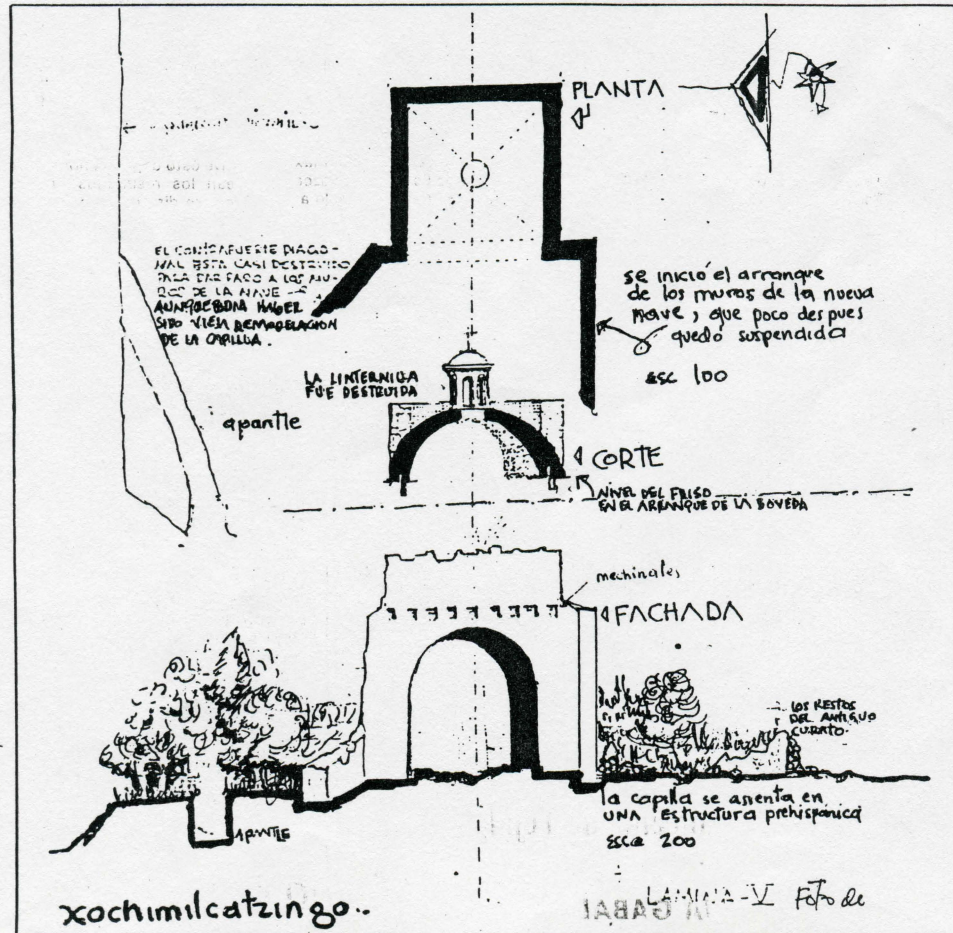 PLANTA
EL CONTRAFUERTE DIAGO-
NAL ESTA CASI DESTRUIDO
PARA DAR PASO A LOS MU-
ROS DE LA NAVE
AUNQUE PODRIA HABER
SIDO VIEJA REMODELACION
DE LA CAPILLA.
se inició el arranque
de los muros de la nueva
nave, que poco despues
quedó suspendida
esc 100
LA LINTERNILLA
FUE DESTRUIDA
apantle
CORTE
NIVEL DEL FRISO
EN EL ARRANQUE DE LA BOVEDA
mechinales
FACHADA
LOS RESTOS
DEL ANTIGUO
CURATO.
la capilla se asienta en
UNA estructura prehispánica
esca 200
APANTLE
xochimilcatzingo..
LAMINA-V Foto de